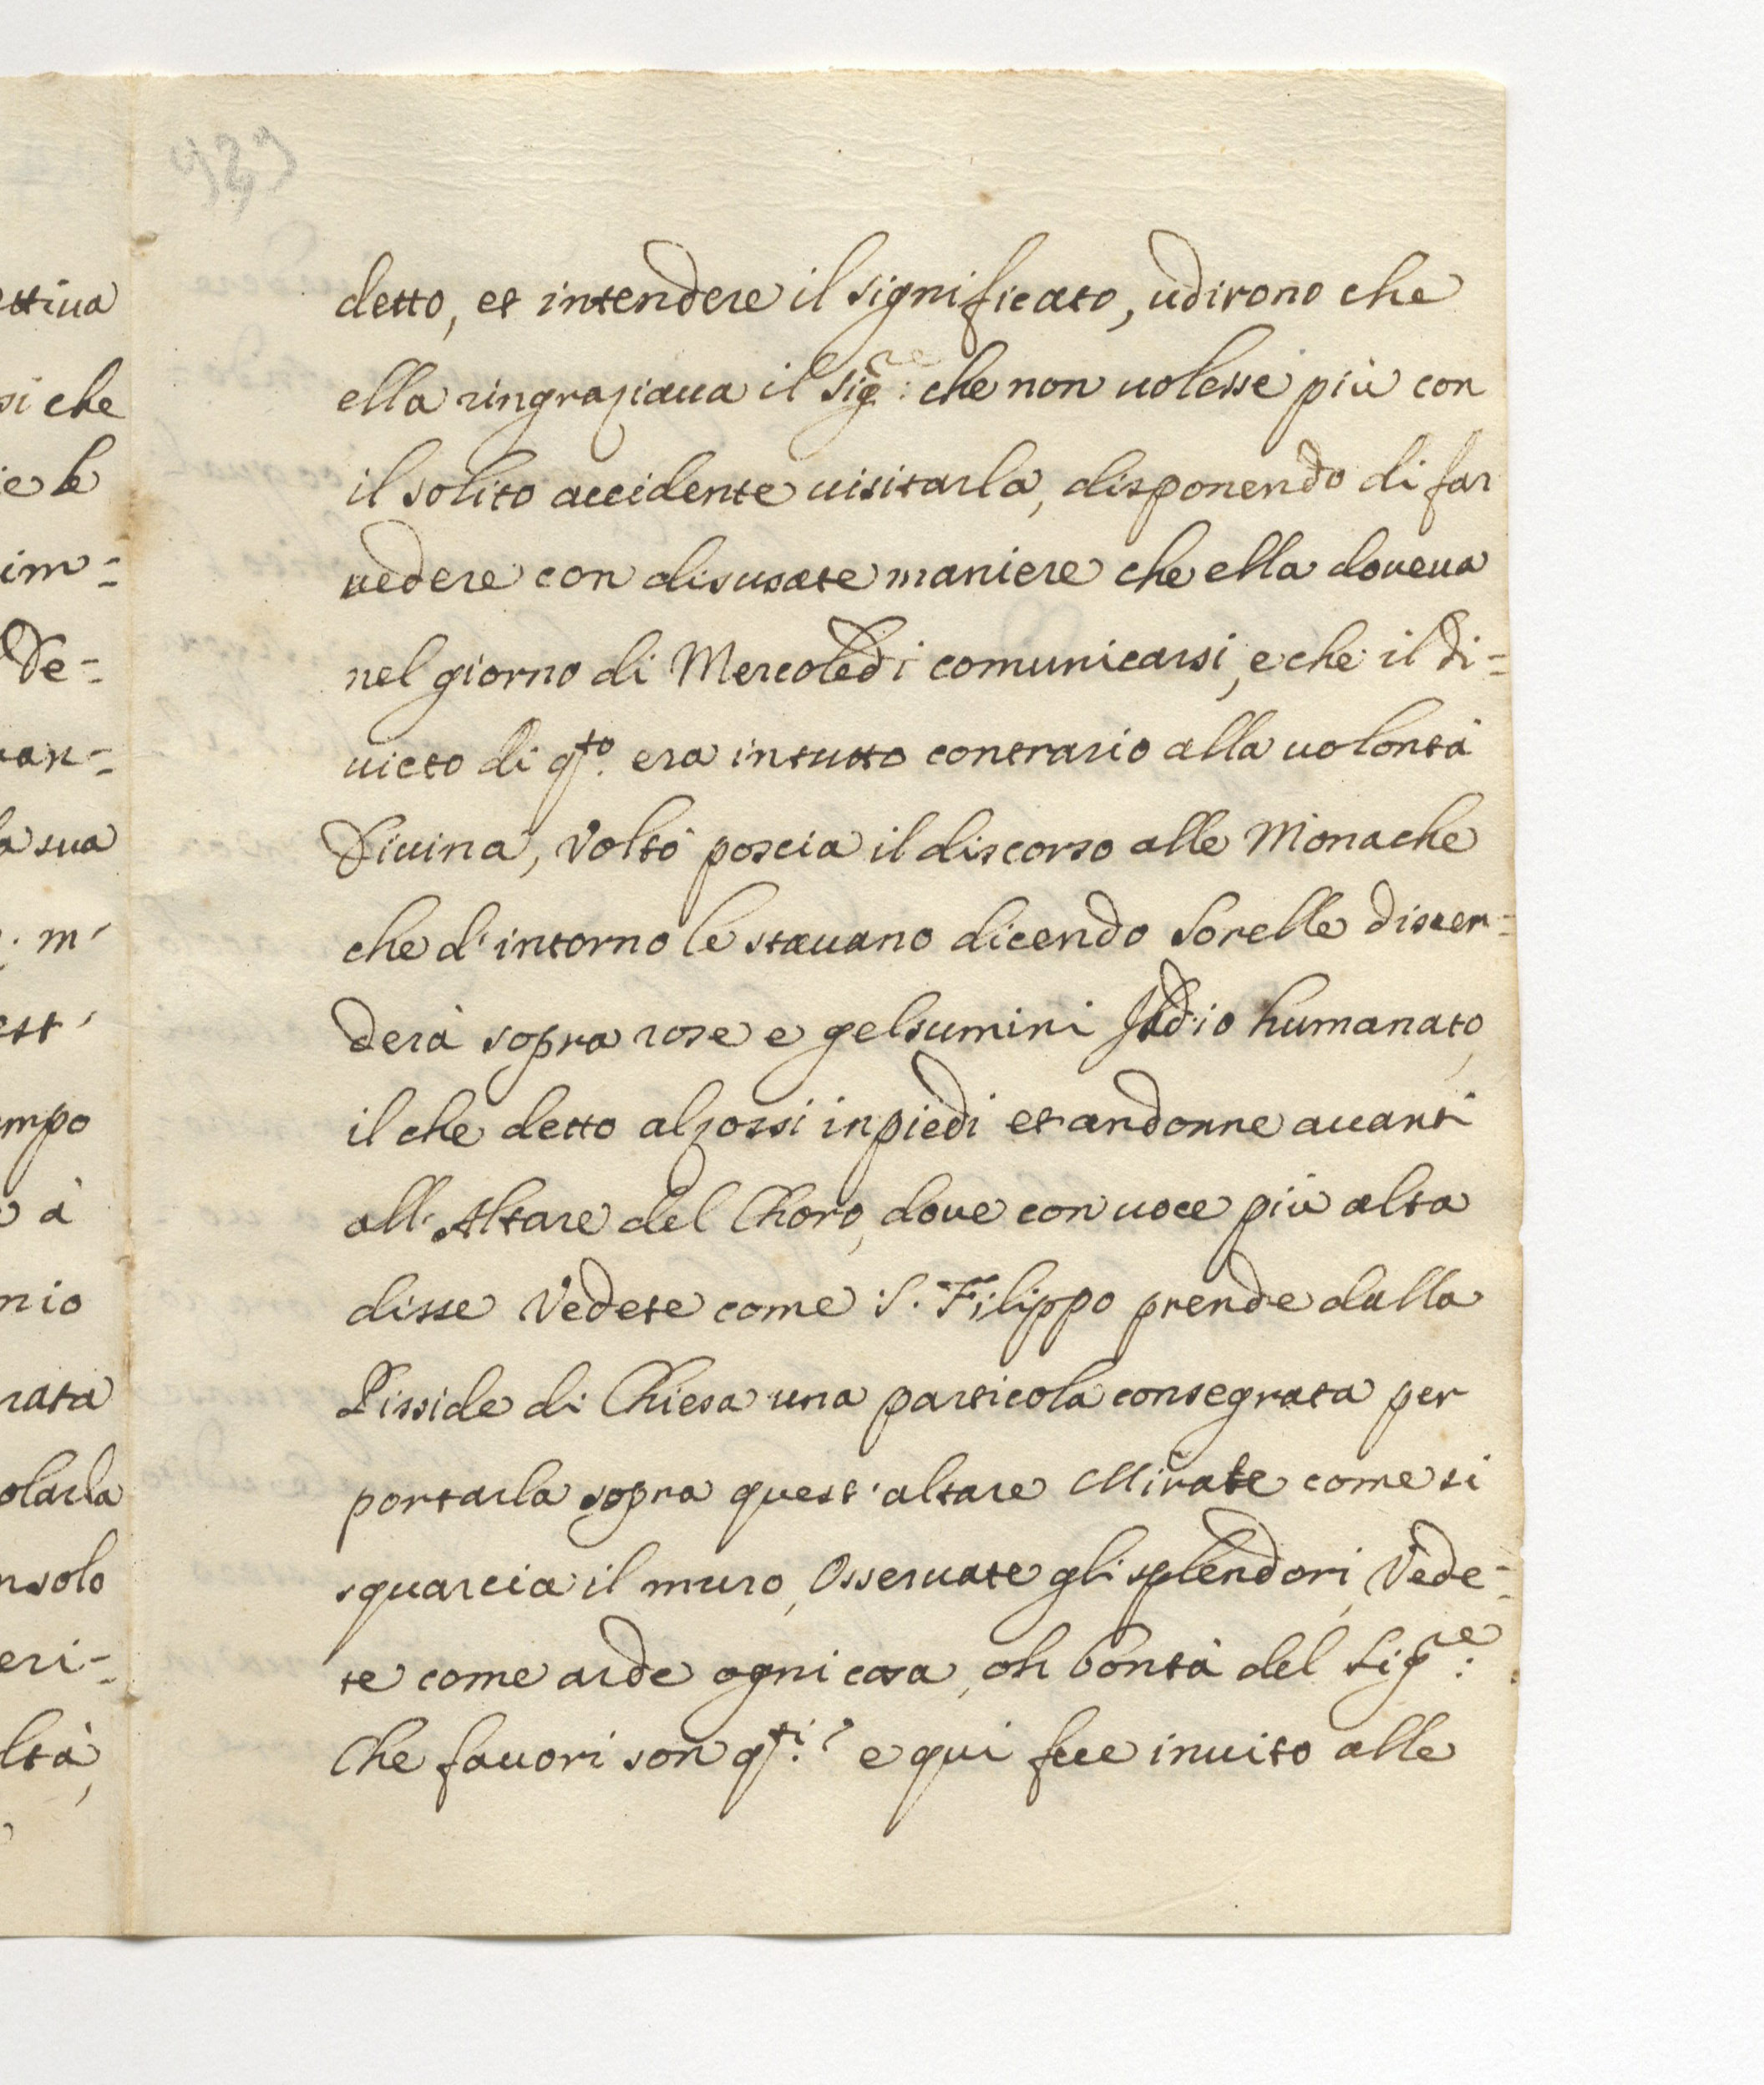 929
detto, et intendere il significato, udirono che
ella ringraziaua il Sig.re che non uolesse più con
il solito accidente uisitarla, disponendo di far
uedere con disusate maniere che ella doueua
nel giorno di Mercoledi comunicarsi, e che il di=
uieto di q.to era in tutto contrario alla uolontà
Diuina, Voltò poscia il discorso alle Monache
che d'intorno le stauano dicendo Sorelle discen=
derà sopra rose e gelsumini Iddio humanato,
il che detto alzossi in piedi et andonne auanti
all'Altare del Choro, doue con uoce più alta
disse Vedete come S. Filippo prende dalla
Pisside di Chiesa una particola consegrata per
portarla sopra quest'altare Mirate come si
squarcia il muro, Osseruate gli splendori, Vede=
te come arde ogni cosa, oh bontà del Sig.re:
Che fauori son q.ti? e qui fece inuito alle
ettiua
si che
ie le
im=
De=
uan=
la sua
m'
est'
empo
à
nio
rata
olarla
nsolo
eri=
ltà,